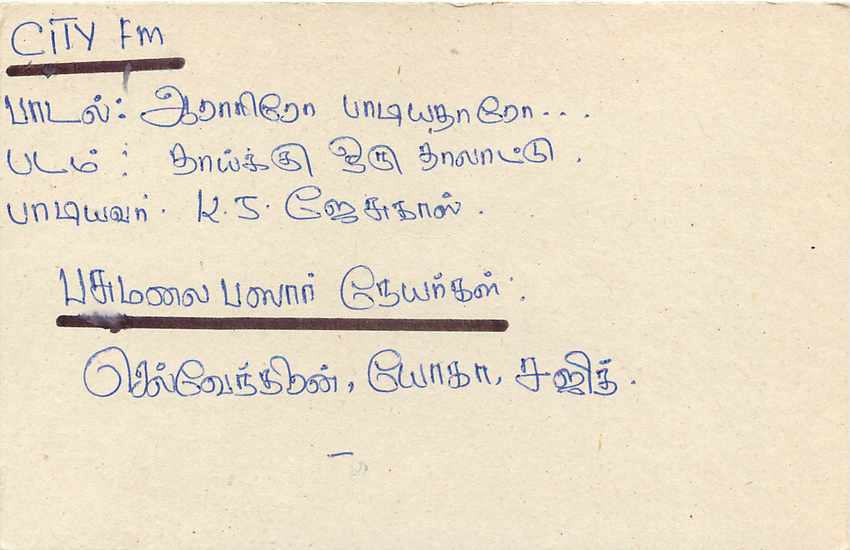 CITY FM
பாடல்: ஆராரிரோ பாடியதாரோ...
படம் : தாய்க்கு ஒரு தாலாட்டு.
பாடியவர். K.J. ஜேசுதாஸ்.
பசுமலை பஸார் நேயர்கள்.
செல்வேந்திரன், யோகா, சஜித்.